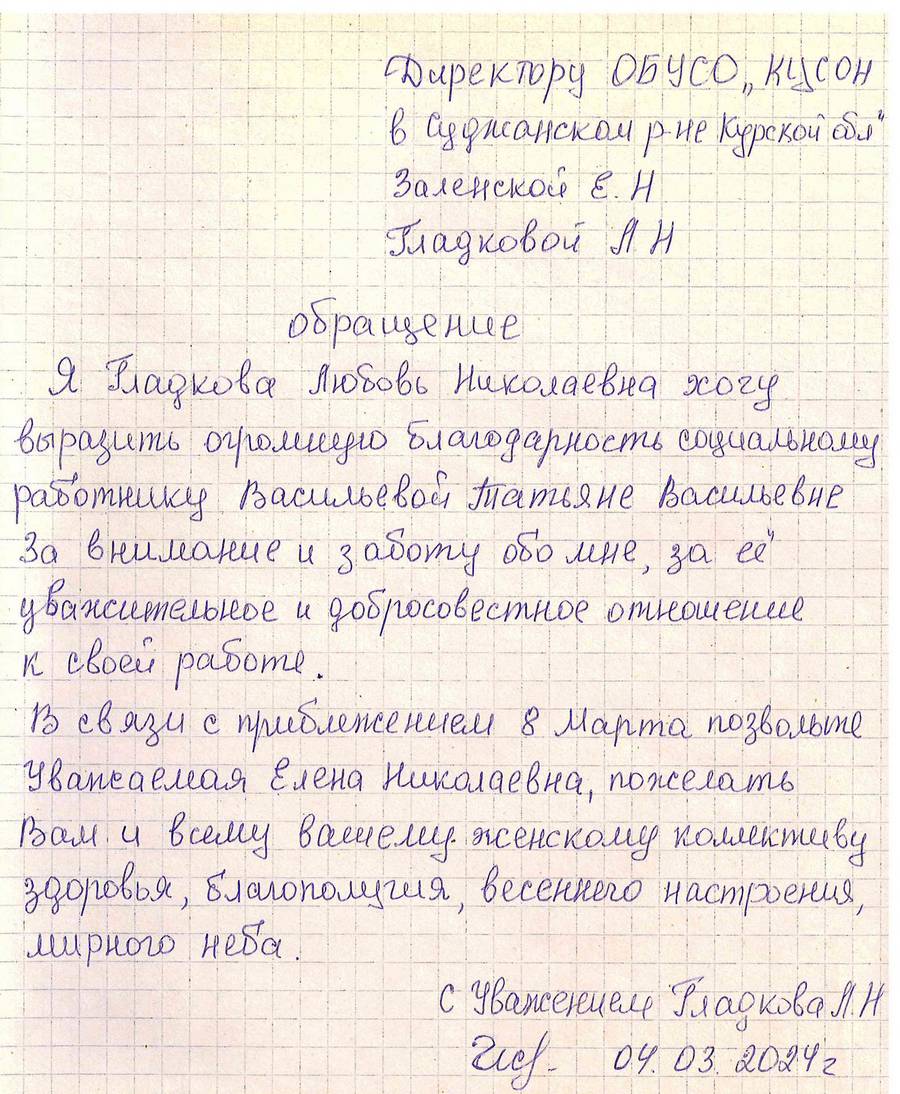 Директору ОБУСО „КЦСОН
в Суджанском р-не Курской обл"
Заленской Е. Н
Гладковой Л Н
обращение
Я Гладкова Любовь Николаевна хочу
выразить огромную благодарность социальному
работнику Васильевой Татьяне Васильевне
За внимание и заботу обо мне, за её
уважительное и добросовестное отношение
к своей работе.
В связи с приближением 8 Марта позвольте
Уважаемая Елена Николаевна, пожелать
Вам и всему вашему женскому коллективу
здоровья, благополучия, весеннего настроения,
мирного неба.
С Уважением Гладкова Л.Н
04. 03. 2024г